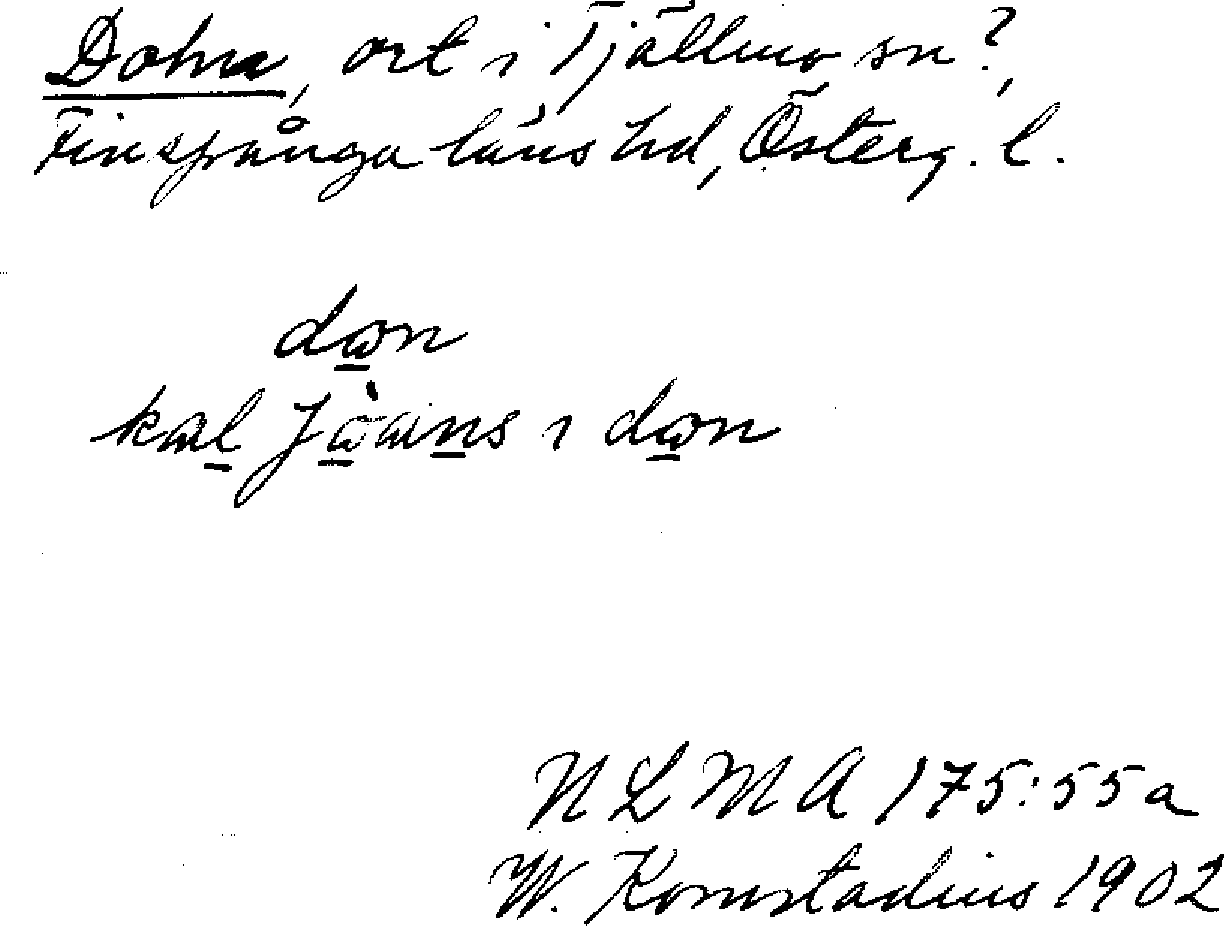 Dohna, ort i Tjällmo sn?,
Finspånga läns hd, Österg. l.
dωn
kal Jòans ı dωn
N L M A 175:55a
W. Kornstadius 1902